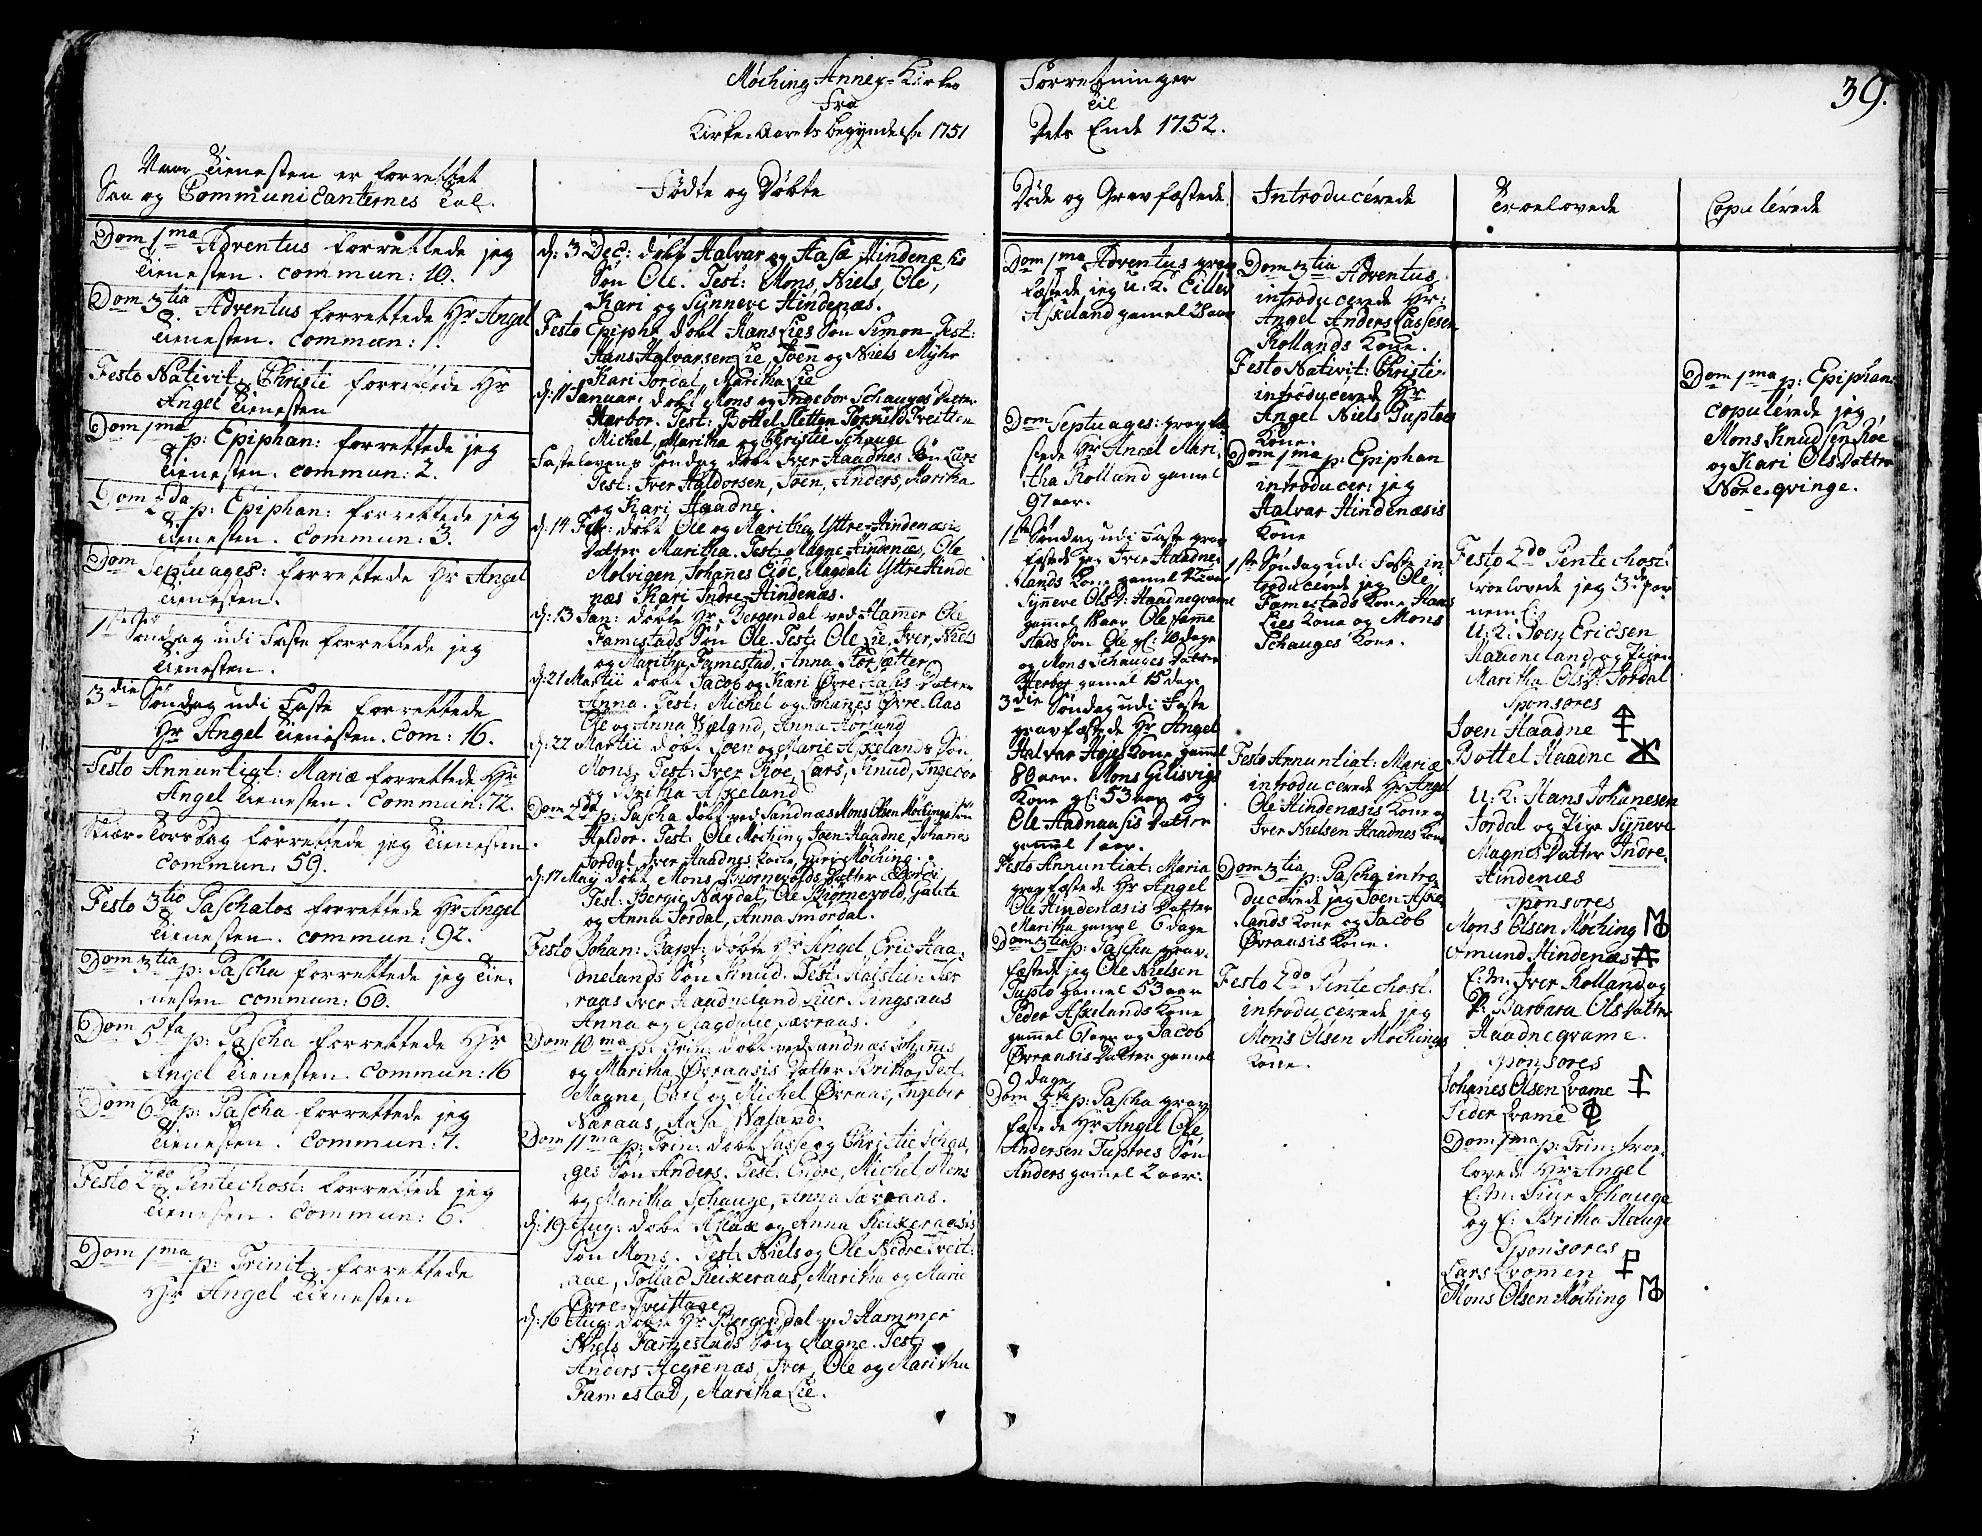 Møching Annex-Kirkes
Fra
Kirke-Aarets begyndelse 1751
Forretninger
til
Dets Ende 1752.
39.
Naar Tienesten er forrettet
Saa og Communicanternes Tal.
Dom 1ma Adventus forrettede jeg
Tienesten. commun: 10.
Dom 3tia Adventus forrettede Hr Angel
Tienesten. commun: 1.
Festo Nativit: Christi forrettede Hr
Angel Tienesten
Dom 1ma p: Epiphan: forrettede jeg
Tienesten. commun: 2.
Dom 2da p: Epiphan: forrettede jeg
Tienesten. commun: 3.
Dom Septuages: forrettede Hr Angel
Tienesten.
1ste Søndag udi Faste forrettede jeg
Tienesten.
3die Søndag udi Faste forrettede
Hr Angel Tienesten. com: 16.
Festo Annuntiat: Mariæ forrettede Hr
Angel Tienesten. commun: 72.
Skiær-Torsdag forrettede jeg Tienesten.
commun: 59.
Festo 3tio Paschatos forrettede Hr Angel
Tienesten. commun: 92.
Dom 3tia p: Pascha forrettede jeg Tie-
nesten commun: 60.
Dom 5ta p: Pascha forrettede Hr
Angel Tienesten. commun: 16
Dom 6ta p: Pascha forrettede jeg
Tienesten. commun: 7.
Festo 2do Pentechost: forrettede jeg
Tienesten. commun: 6.
Dom 1ma p: Trinit: forrettede
Hr Angel Tienesten
Fødte og Døbte
d: 3 Dec: døbt Halvar og Aasæ Hindenæsis
Søn Ole. Test: Mons, Niels, Ole,
Kari og Synneve Hindenæs.
Festo Epiph: døbt Hans Lies Søn Simon. Test:
Hans Halvarsen Lie, Joen og Niels Myhr
Kari Jordal, Maritha Lie
d: 11 Januar: døbt Mons og Ingebor Schauges Datter
Herbor. Test: Bottel Sletten Tveitten
Michel, Maritha og Christi Schauge
Fastelavens Søndag døbt Iver Haadnes Søn Lars
Test: Iver Haldorsen, Joen, Anders, Maritha
og Kari Haadne.
d: 14 Febr: døbt Ole og Maritha Yttre-Hindenæsis
Datter Maritha. Test: Magne Hindenæs, Ole
Molvigen, Johannes Eide, Magdali Yttre Hinde
næs Kari Indre-Hindenæs.
d: 13 Jan: døbte Hr Bergendal ved Hammer Ole
Famestads Søn Ole. Test: Ole Lie, Iver, Niels
og Maritha Famestad, Anna Sætter
d: 21 Martii døbt Jacob og Kari Øvre-Aasis Datter
Anna. Test: Michel og Johannes Øvre-Aas
Ole og Anna Anna
d: 22 Martii døbt Joen og Marie Askelands Søn
Mons. Test: Iver Røe, Lars, Knud, Ingebor
og Britha Askeland
Dom 2da p: Pascha døbt ved Sandnæs Mons Olsen Møchings Søn
Haldor. Test: Ole Møching, Joen Haadne, Johannes
Jordal, Iver Haadnes Kone, Guri Møching.
d: 17 Maij døbt Mons Biørnevolds Datter
Test: Berge Nævdal, Ole Biørnevold,
og Anna Jordal, Anna
Festo Johan: Bapt: døbte Hr Angel Eric Haa-
nelands Søn Knud. Test: Sær
raas Iver Haadneland Siur Kingsaas
Anna og Magdalie Særraas.
Dom 10ma p: Trin: døbt ved Sandnæs Johannes
og Maritha Øvraasis Datter Britha. Test:
Magne, og Michel Øvraas, Ingebor
Næraas, Aasa
Dom 11ma p: Trin: døbt Lasse og Christie Schau-
ges Søn Anders. Test: Endre, Michel, Mons
og Maritha Schauge, Anna Særaas.
d: 19 Aug: døbt Aslak og Anna Reikeraasis
Søn Mons. Test: Niels og Ole Nedre-Tveit-
aae, Tollac Reikeraas, Maritha og Marie
Øvre-Tveittaae
d: 16 Aug: døbte Hr Bergendal ved Hammer
Niels Famestads Søn Magne. Test:
Anders Iver, Ole og Maritha
Famestad, Maritha Lie.
Døde og Gravfæstede
Dom 1ma Adventus grav
fæstede jeg u. k. Eiller
Askeland gamel 28 aar
Dom Septuages: gravfæ-
stede Hr Angel Mari-
tha Rolland gamel
97 aar.
1ste Søndag udi Faste grav
fæstede jeg Iver Haadne-
lands Kone gamel
Synneve Olsd: Haadnegvame
gamel 18 aar Ole Famme
stads Søn Ole gl: 10 dage
og Mons Schauges Datter
Herbor gamel 15 dage
3die Søndag udi Faste
gravfæstede Hr Angel
Halvar Kone gamel
80 aar. Mons Gilisvigs
Kone gl: 53 aar og
Ole Aadnaasis Datter
gamel 1 aar.
Festo Annuntiat: Maria
gravfæstede Hr Angel
Ole Hindenæsis Datter
Maritha gamel 6 dage
Dom 3tia p: Pascha grav-
fæstede jeg Ole Nielsen
Tupto gamel 53 aar
Peder Askelands Kone
gammel og Jacob
Øvraasis Datter gamel
9 dage
Dom 5ta p: Pascha grav
fæstede Hr Angel Ole
Andersen Tuptoes Søn
Anders gamel 2 aar.
Introducerede
Dom 3tia Adventus
introducerede Hr:
Angel Anders Lassesen
Rollands Kone.
Festo Nativit: Christi
introducerede Hr
Angel Niels Tuptoes
Kone.
Dom 1ma p: Epiphan
introducer: jeg
Halvar Hindenæsis
Kone
1ste Søndag udi Faste in
troducerede jeg Ole
Famestads Kone Hans
Lies Kone og Mons
Schauges Kone.
Festo Annuntiat: Mariæ
introducerede Hr Angel
Ole Hindenæsis Kone og
Iver Nielsen Haadnes Kone
Dom 3tia p: Pascha intro
ducerede jeg Joen Aske
lands Kone og Jacob
Øvraasis Kone.
Festo 2do Pentechost:
introducerede jeg
Mons Olsen Møchings
Kone.
Troelovede
Festo 2do Pentechost:
troelovede jeg 3de par
nemlig:
u. k: Joen Ericsen
Haadneland og Pigen
Maritha Olsd: Jordal
Sponsores
Joen Haadne
Bottel Haadne
u. k: Hans Johanesen
Jordal og Pige Synneve
Magnes Datter Indre-
Hindenæs
Sponsores
Mons Olsen Møching
Omund Hindenæs
E: m: Iver Rolland og
P: Barbara Ols Datter
Haadnegvame.
Sponsores
Johanes Olsen Qvame
Peder Qvame
Dom 1ma p: Trin: troe-
lovede Hr Angel
E: m: Siur Schauge
og E: Britha Hauge
Sponsores
Lars Qvamen
Mons Olsen Møching
Copulerede
Dom 1ma p: Epiphan:
copulerede jeg
Mons Knudsen Røe
og Kari Ols Datter
Nore-qvinge.